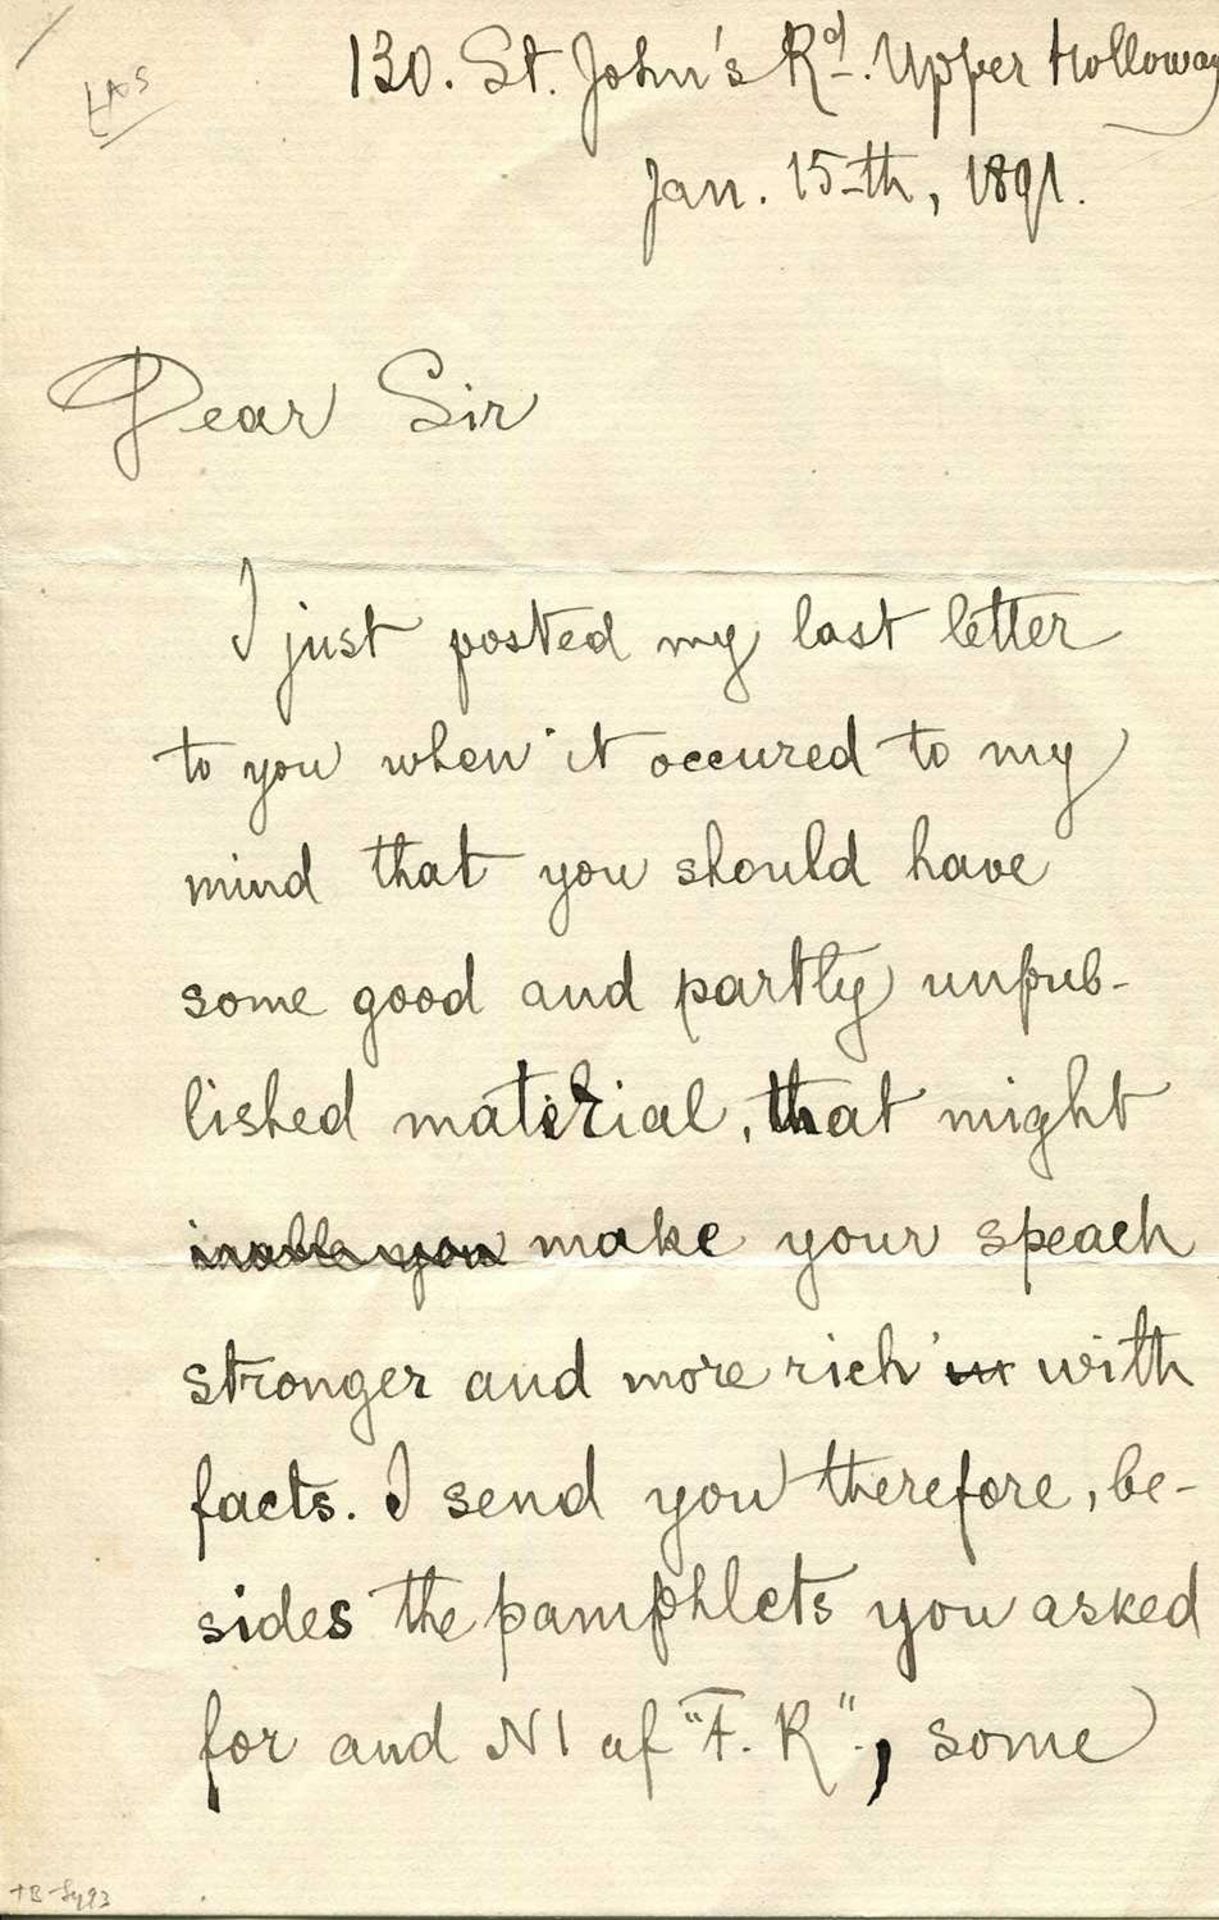 130. St. John's Rd. Upper Holloway
Jan. 15-th, 1891.
Dear Sir
I just posted my last letter
to you when it occured to my
mind that you should have
some good and partly unpub-
lished material, that might
inable you make your speach
stronger and more rich in with
facts. I send you therefore, be-
sides the pamphlets you asked
for and N1 of "F. R.", some